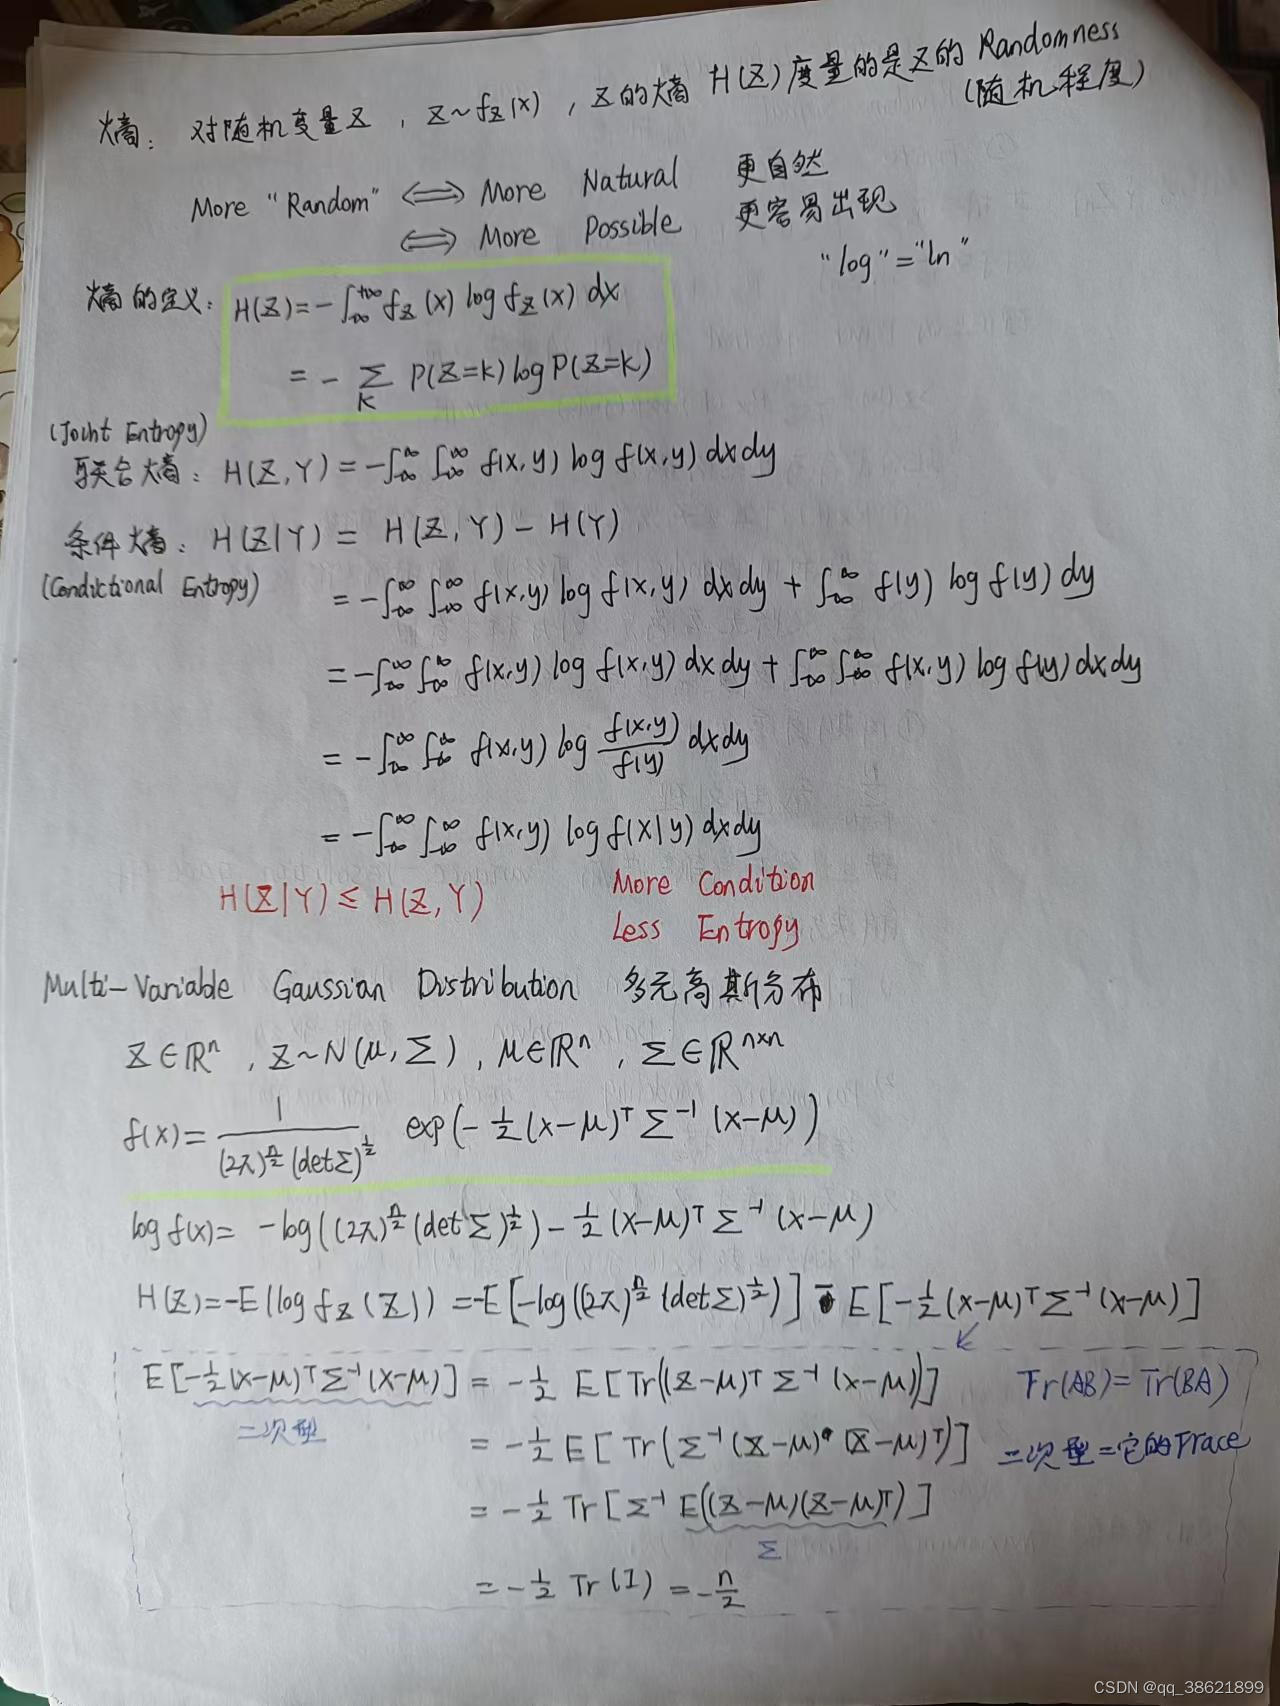 熵: 对随机变量Z , Z~f_Z(x) , Z的熵 H(Z)度量的是Z的 Randomness
(随机程度)
More "Random" ⟺ More Natural 更自然
⟺ More Possible 更容易出现
"log"="ln"
熵的定义: H(Z)=-∫_{-∞}^{+∞} f_Z(x) log f_Z(x) dx
= - Σ_K P(Z=K) log P(Z=K)
(Joint Entropy)
联合熵: H(Z,Y) = -∫_{-∞}^{∞} ∫_{-∞}^{∞} f(x,y) log f(x,y) dxdy
条件熵: H(Z|Y) = H(Z,Y) - H(Y)
(Condictional Entropy)
= -∫_{-∞}^{∞} ∫_{-∞}^{∞} f(x,y) log f(x,y) dxdy + ∫_{-∞}^{∞} f(y) log f(y) dy
= -∫_{-∞}^{∞} ∫_{-∞}^{∞} f(x,y) log f(x,y) dxdy + ∫_{-∞}^{∞} ∫_{-∞}^{∞} f(x,y) log f(y) dxdy
= -∫_{-∞}^{∞} ∫_{-∞}^{∞} f(x,y) log \frac{f(x,y)}{f(y)} dxdy
= -∫_{-∞}^{∞} ∫_{-∞}^{∞} f(x,y) log f(x|y) dxdy
H(Z|Y) ≤ H(Z,Y) More Condition
Less Entropy
Multi-Variable Gaussian Distribution 多元高斯分布
Z∈ℝ^n , Z~N(μ,Σ) , μ∈ℝ^n , Σ∈ℝ^{n×n}
f(x)= \frac{1}{(2π)^{\frac{n}{2}}(detΣ)^{\frac{1}{2}}} exp(-\frac{1}{2}(x-μ)^T Σ^{-1} (x-μ))
log f(x)= -log((2π)^{\frac{n}{2}}(detΣ)^{\frac{1}{2}}) - \frac{1}{2}(x-μ)^T Σ^{-1} (x-μ)
H(Z)=-E(log f_Z(Z)) =-E[-log((2π)^{\frac{n}{2}}(detΣ)^{\frac{1}{2}})] - E[-\frac{1}{2}(x-μ)^T Σ^{-1} (x-μ)]
E[-\frac{1}{2}(x-μ)^T Σ^{-1} (x-μ)] = -\frac{1}{2} E[Tr((Z-μ)^T Σ^{-1} (x-μ))] Tr(AB)=Tr(BA)
二次型
= -\frac{1}{2} E[Tr(Σ^{-1}(Z-μ)(Z-μ)^T)] 二次型=它的Trace
= -\frac{1}{2} Tr[Σ^{-1} E((Z-μ)(Z-μ)^T)]
Σ
= -\frac{1}{2} Tr(I) = -\frac{n}{2}
CSDN @qq_38621899